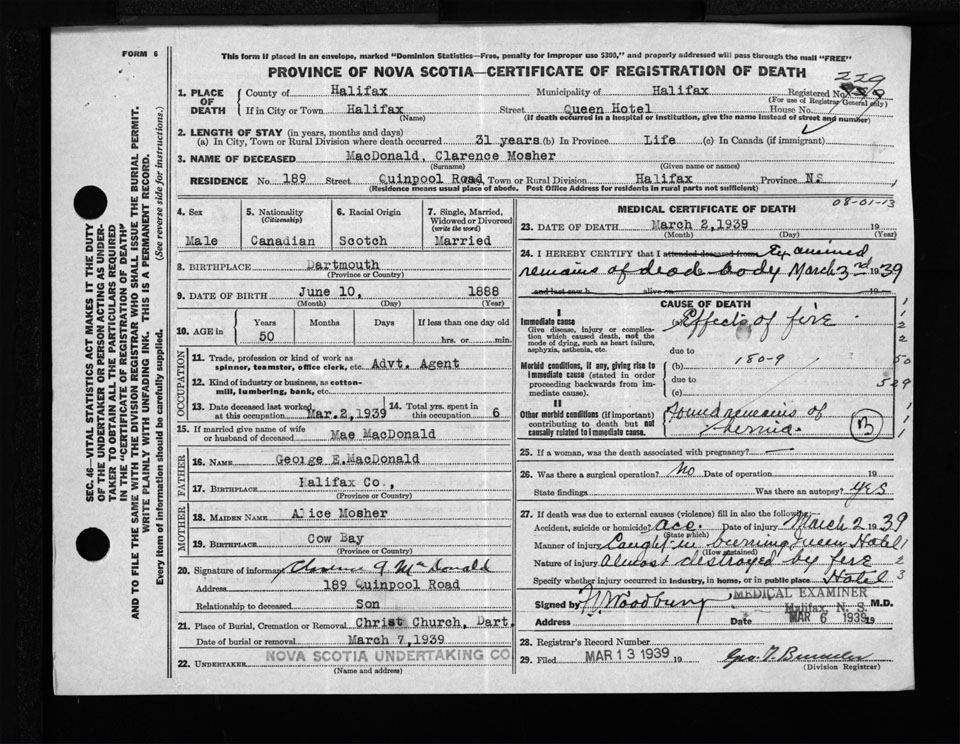 FORM 6
This form if placed in an envelope, marked "Dominion Statistics—Free, penalty for improper use $300," and properly addressed will pass through the mail "FREE"
PROVINCE OF NOVA SCOTIA—CERTIFICATE OF REGISTRATION OF DEATH
229
1. PLACE OF DEATH County of Halifax Municipality of Halifax Registered No.
(For use of Registrar General only)
If in City or Town Halifax Street Queen Hotel House No.
(Name) (If death occurred in a hospital or institution, give the name instead of street and number)
2. LENGTH OF STAY (in years, months and days)
(a) In City, Town or Rural Division where death occurred 31 years (b) In Province Life (c) In Canada (if immigrant)
3. NAME OF DECEASED MacDonald, Clarence Mosher
(Surname) (Given name or names)
RESIDENCE No. 189 Street Quinpool Road City, Town or Rural Division Halifax Province NS
(Residence means usual place of abode. Post Office Address for residents in rural parts not sufficient)
08-01-13
4. Sex 5. Nationality (Citizenship) 6. Racial Origin 7. Single, Married, Widowed or Divorced (write the word)
Male Canadian Scotch Married
8. BIRTHPLACE Dartmouth
(Province or Country)
9. DATE OF BIRTH June 10, 1888
(Month) (Day) (Year)
10. AGE in Years Months Days If less than one day old
50 hrs. or min.
OCCUPATION
11. Trade, profession or kind of work as spinner, teamster, office clerk, etc. Advt. Agent
12. Kind of industry or business, as cotton-mill, lumbering, bank, etc.
13. Date deceased last worked at this occupation Mar.2,1939 14. Total yrs. spent in this occupation 6
15. If married give name of wife or husband of deceased Mae MacDonald
FATHER
16. NAME George E.MacDonald
17. BIRTHPLACE Halifax Co.,
(Province or Country)
MOTHER
18. MAIDEN NAME Alice Mosher
19. BIRTHPLACE Cow Bay
(Province or Country)
20. Signature of informant Clarence G MacDonald
Address 189 Quinpool Road
Relationship to deceased Son
21. Place of Burial, Cremation or Removal Christ Church, Dart.
Date of burial or removal March 7,1939
22. UNDERTAKER NOVA SCOTIA UNDERTAKING CO.
(Name and address)
MEDICAL CERTIFICATE OF DEATH
23. DATE OF DEATH March 2,1939 19
(Month) (Day) (Year)
24. I HEREBY CERTIFY that I attended deceased from Examined
remains of dead body March 3rd 1939
and last saw h alive on 19
CAUSE OF DEATH
I
Immediate cause Effects of fire
Give disease, injury or complication which caused death, not the mode of dying, such as heart failure, asphyxia, asthenia, etc.
due to
Morbid conditions, if any, giving rise to immediate cause (stated in order proceeding backwards from immediate cause).
(b) 180-9
due to
(c)
II
Other morbid conditions (if important) contributing to death but not causally related to immediate cause. Found remains of hernia.
1
1
2
2
50
529
1
1
25. If a woman, was the death associated with pregnancy? —
26. Was there a surgical operation? No Date of operation 19
State findings Was there an autopsy? yes
27. If death was due to external causes (violence) fill in also the following:
Accident, suicide or homicide? acc. Date of injury March 2 1939
(State which)
Manner of injury Caught in burning Queen Hotel 1
(How sustained)
Nature of injury Almost destroyed by fire 2
Specify whether injury occurred in industry, in home, or in public place Hotel 3
Signed by Woodbury MEDICAL EXAMINER M.D.
Halifax, N. S.
Address Date MAR 6 1939 19
28. Registrar's Record Number
29. Filed MAR 13 1939 19
(Division Registrar)
SEC. 46—VITAL STATISTICS ACT MAKES IT THE DUTY
OF THE UNDERTAKER OR PERSON ACTING AS UNDER-
TAKER TO OBTAIN ALL THE PARTICULARS REQUIRED
IN THE "CERTIFICATE OF REGISTRATION OF DEATH"
AND TO FILE THE SAME WITH THE DIVISION REGISTRAR WHO SHALL ISSUE THE BURIAL PERMIT.
WRITE PLAINLY WITH UNFADING INK. THIS IS A PERMANENT RECORD.
Every item of information should be carefully supplied. (See reverse side for instructions.)